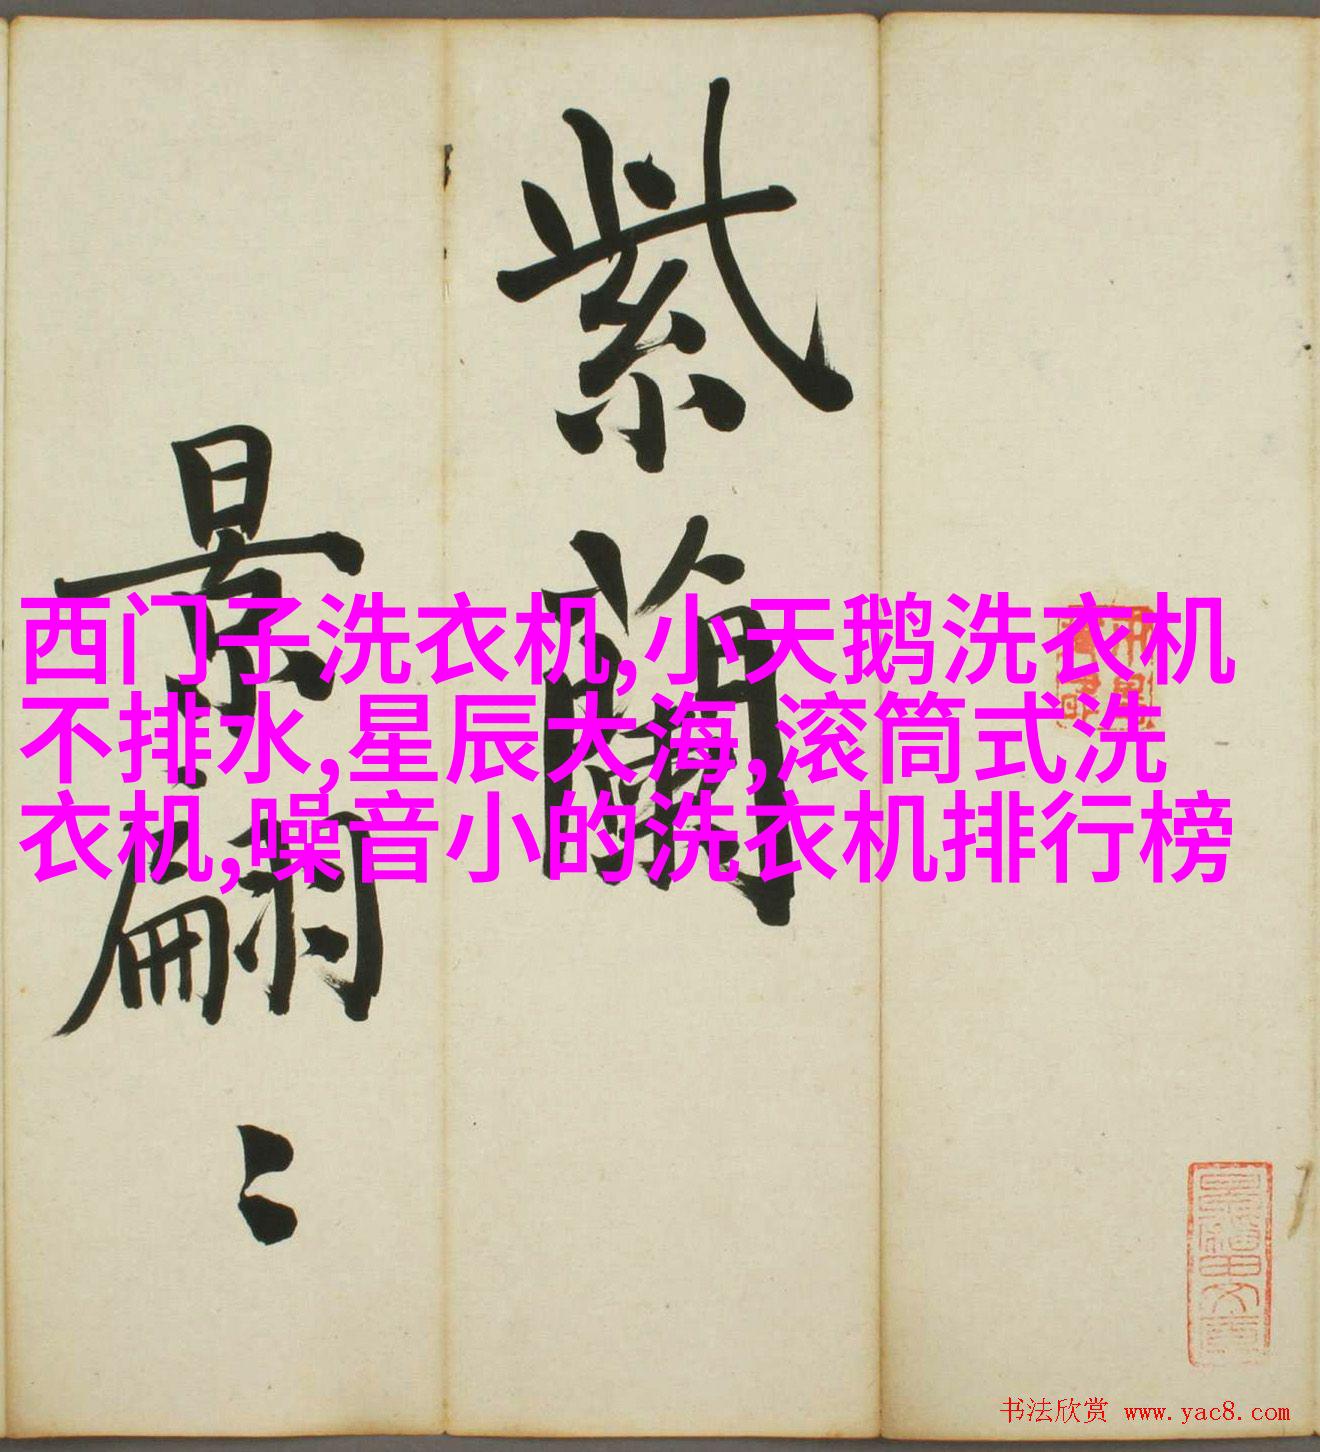 紫蘭
景翩〻
西门子洗衣机,小天鹅洗衣机
不排水,星辰大海,滚筒式洗
衣机,噪音小的洗衣机排行榜
书法欣赏 www.yac8.com